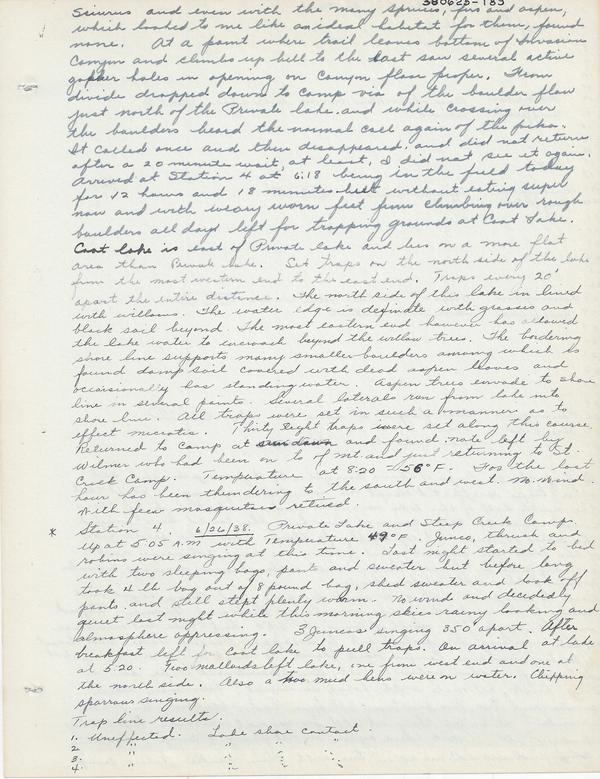 380625-183
Sciurus and even with the many spruces, firs and aspen,
which looked to me like an ideal habitat for them, found
none. At a point where trail leaves bottom of Invasion
Canyon and climbs up hill to the East saw several active
gopher holes in opening on canyon floor proper. From
divide dropped down to camp via of the boulder flow
just north of the Private lake. and while crossing over
the boulders heard the normal call again of the pika.
It called once and then disappeared, and did not return
after a 20 minute wait, at least, I did not see it again.
Arrived at Station 4 at 6:18 being in the field today
for 12 hours and 18 minutes but without eating super
now and with weary worn feet from climbing over rough
boulders all day I left for trapping grounds at Coot Lake.
Coot lake is east of Private lake and lies on a more flat
area than Private lake. Set traps on the north side of the lake
from the most western end to the east end. Traps every 20'
apart the entire distince. The north side of this lake in lined
with willows. The water edge is definate with grasses and
black soil beyond. The most eastern end however has allowed
the lake water to incroach beyond the willow trees. The bordering
shore line supports many smaller boulders among which is
found damp soil covered with dead aspen leaves and
occaisionally has standing water. Aspen trees envade to shore
line in several points. Several laterals run from lake into
shore line. All traps were set in such a manner as to
effect microtis. Thirty Eight traps were set along this course.
Returned to camp at sundown and found note left by
Wilmer who had been on to of Mt and just returning to St.
Creek Camp. Temperature at 8:20 = 56°F. For the last
hour has been thundering to the south and west. No wind.
With few mosquitoes retired.
* Station 4. 6/26/38. Private Lake and Steep Creek Camp.
Up at 5:05 A.M with Temperature 49°F. Junco, thrush and
robins were singing at this time. Last night started to bed
with two sleeping bags, pants and sweater but before long
took 4 lb bag out of 8 pound bag, shed sweater and took off
pants and still slept plenty warm. No winds and decidedly
quiet last night while this morning skies rainy looking and
atmosphere oppressing. 3 Juncos singing 350 apart. After
breakfast left for Coot lake to pull traps. On arrival at lake
at 5:20. Two mallards left lake, one from west end and one at
the north side. Also a two mud hens were on water. Chipping
sparrows singing.
Trap line results.
1. Uneffected. Lake shore contact.
2. " " " "
3. " " " "
4. " " " "